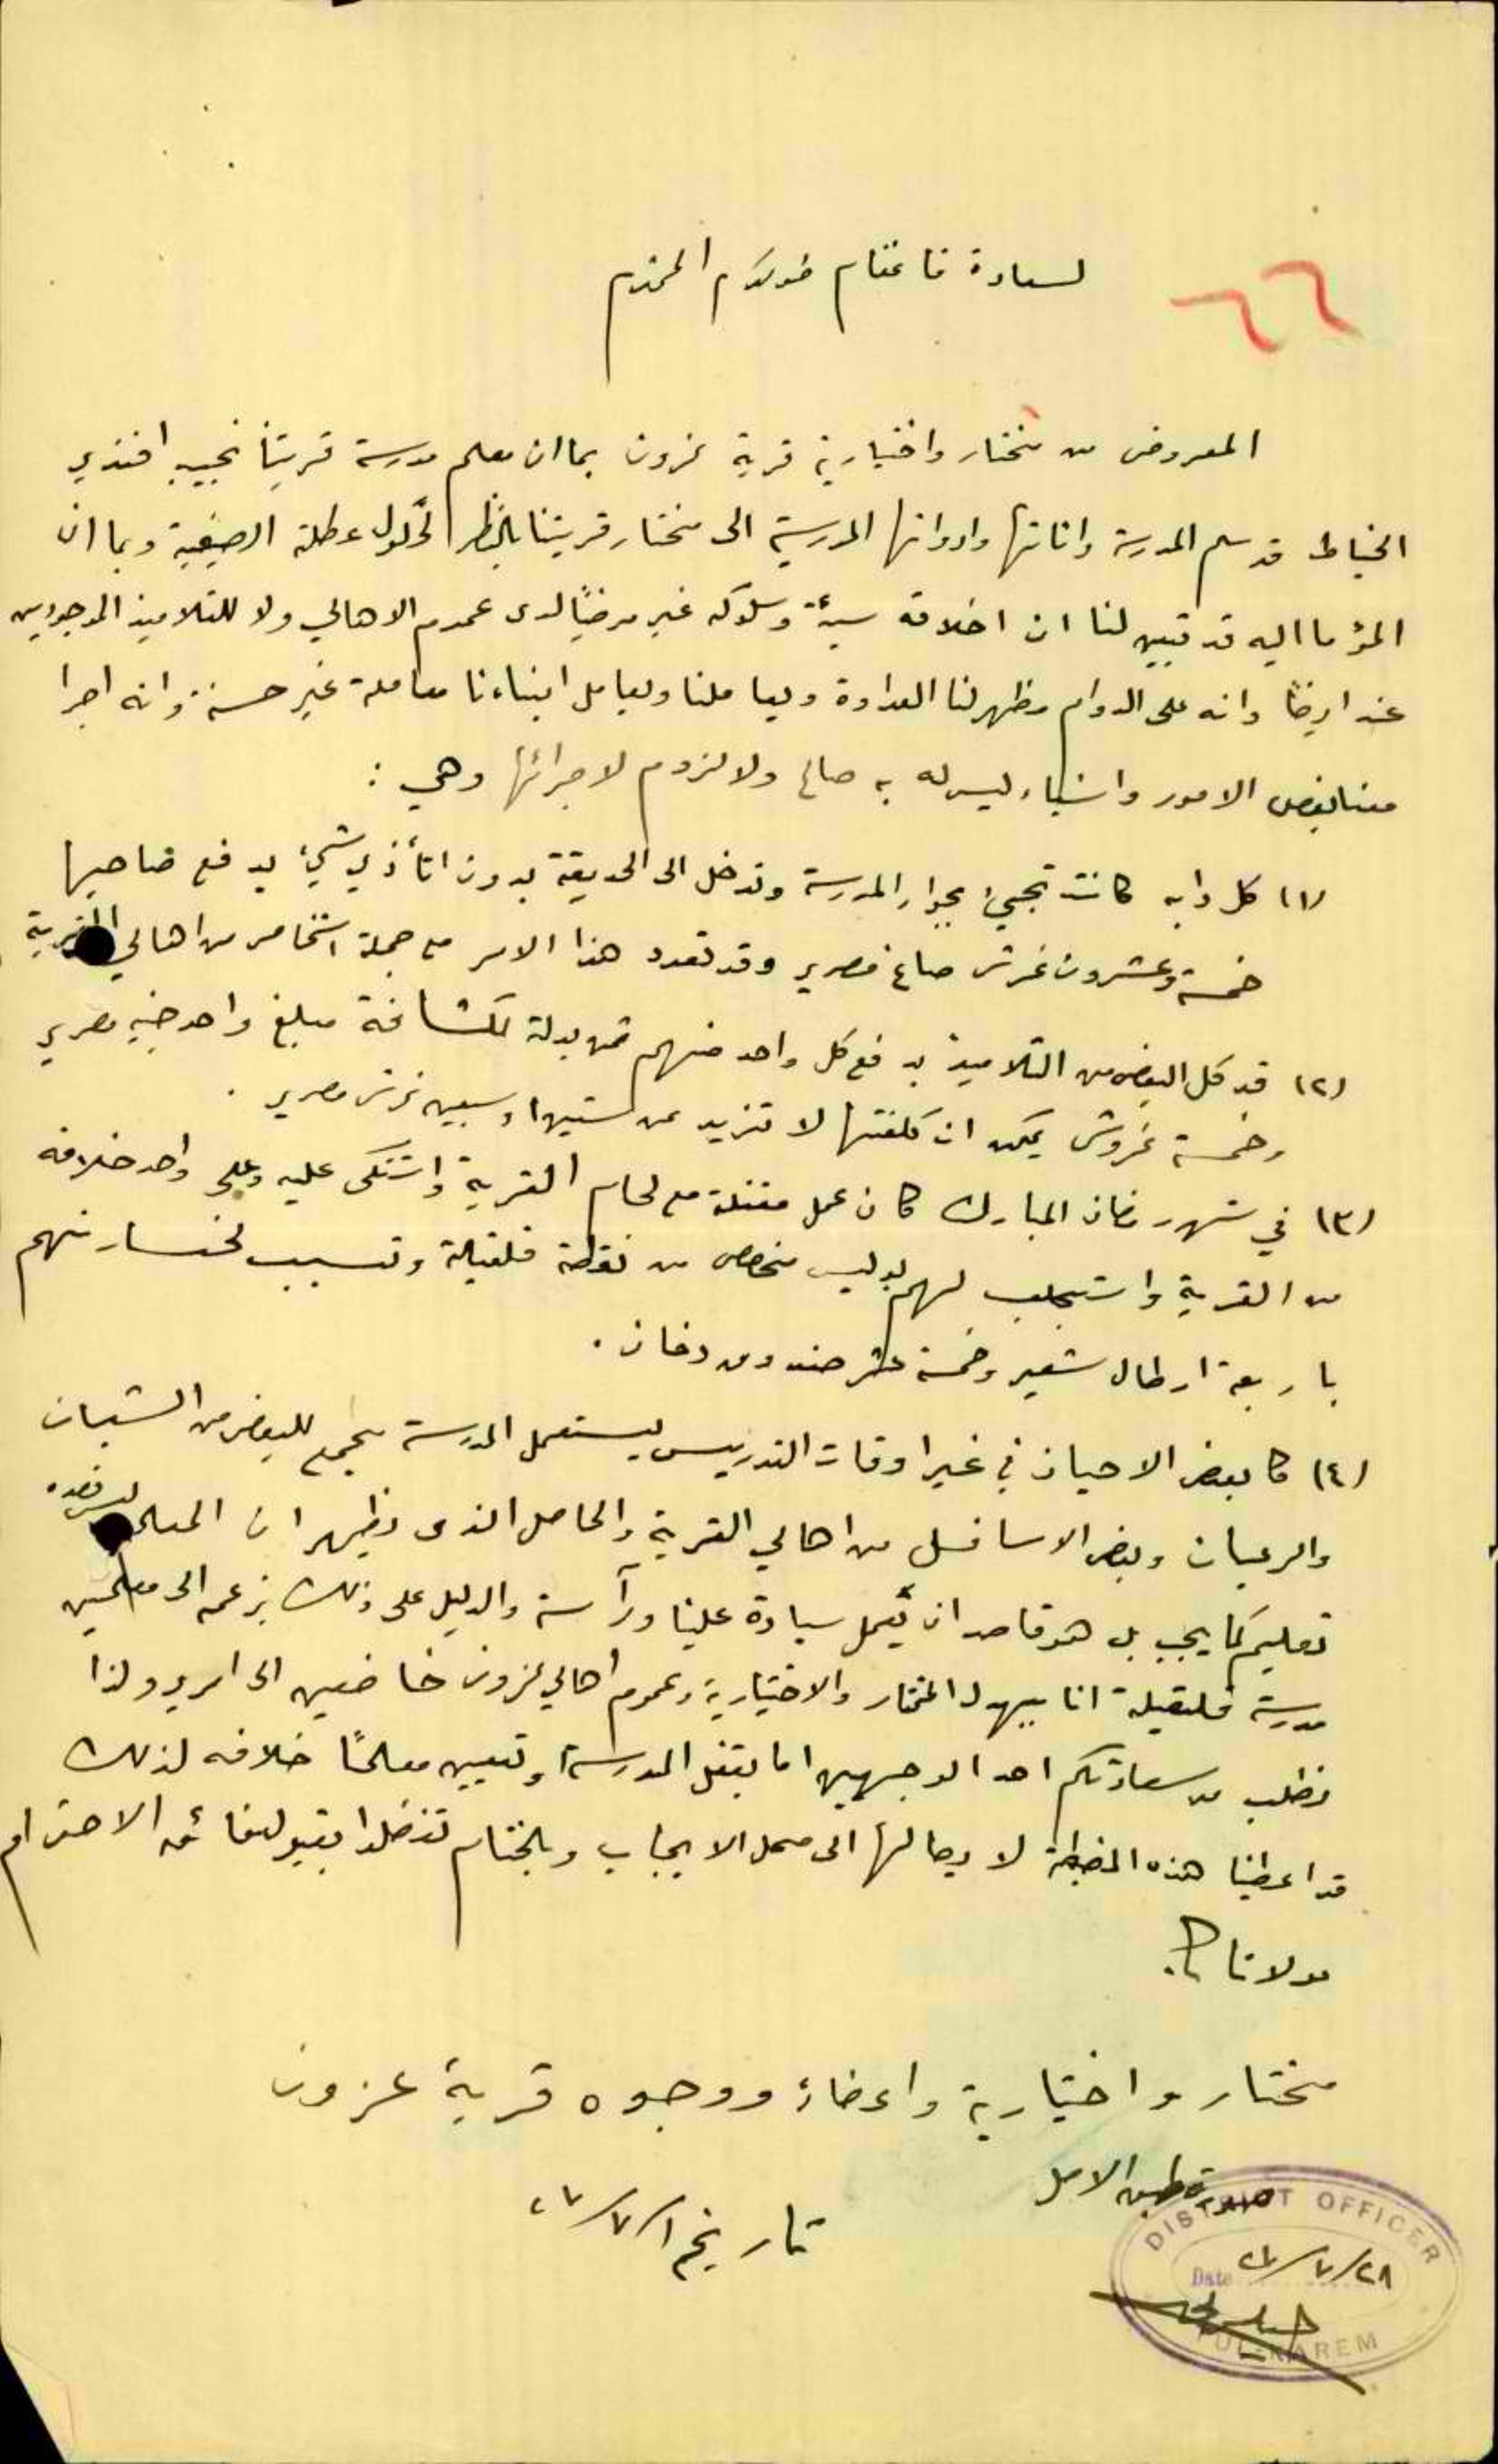 ٦٦
لسعادة قائمقام طولكرم المحترم
المعروض من مختار واختيارية قرية عزون بما ان معلم مدرسة قريتنا نجيب افندي
الخياط قد سلم المدرسة واثاثها وادواتها المدرسية الى مختار قريتنا بالنظر لحلول عطلة الصيفية وبما ان
المؤما اليه قد تبين لنا ان اخلاقه سيئة وسلوكه غير مرضياً لدى عموم الاهالي ولا للتلاميذ الموجودين
عنده ايضاً وانه على الدوام مظهر لنا العداوة ويعاملنا ويعامل ابناءنا معاملة غير حسنة وانه اجرا
معنا بعض الامور واشياء ليس له به صالح ولا لزوم لاجرائها وهي :
(١) كل دابه كانت تجيئ بجوار المدرسة وتدخل الى الحديقة بدون اتأذي شيئ يدفع صاحبها
خمسة وعشرون غرش صاغ مصري وقد تعدد هذا الامر مع جملة اشخاص من اهالي القرية
(٢) قد كل البعض من التلاميذ بدفع كل واحد منهم ثمن بدلة لكشافة مبلغ واحد جنيه مصري
وخمسة غروش يمكن ان كلفتها لا تزيد عن ستين او سبعين غرش مصري .
(٣) في شهر رمضان المبارك كان عمل مقتلة مع لحام القرية واشتكى عليه وعلى واحد خلافه
من القرية واستجلب لهم بوليس مخصص من نقطة قلقيلة وتسبب لخسارتهم
باربعة ارطال شعير وخمسة عشر صندوق دخان .
(٤) كا بعض الاحيان في غير اوقات التدريس يستعمل المدرسة مجمع للبعض من الشبان
والرعيان وبعض الاسافل من اهالي القرية والحاصل الذى يظهر ان المعلم ليس قصده
تعليم كما يجب بل هو قاصد ان يعمل سيادة علينا ورآسة والدليل على ذلك بزعمه الى معلمين
مدرسة قلقيلة انا بيهدل المختار والاختيارية وعموم اهالي عزون خاضعين الى امري ولذا
نطلب من سعادتكم احد الوجهين اما بقفل المدرسة او تعيين معلماً خلافه لذلك
قد اعطينا هذه المضبطة لايصالها الى محل الايجاب وبالختام تفضلوا بقبول فائق الاحترام
مولانا
مختار واختيارية واعضاء ووجوه قرية عزون
صورة طبق الاصل
تاريخ ١/٧/٢٧
DISTRICT OFFICER
Date ٢٨/٧/٢٧
TUL-KAREM